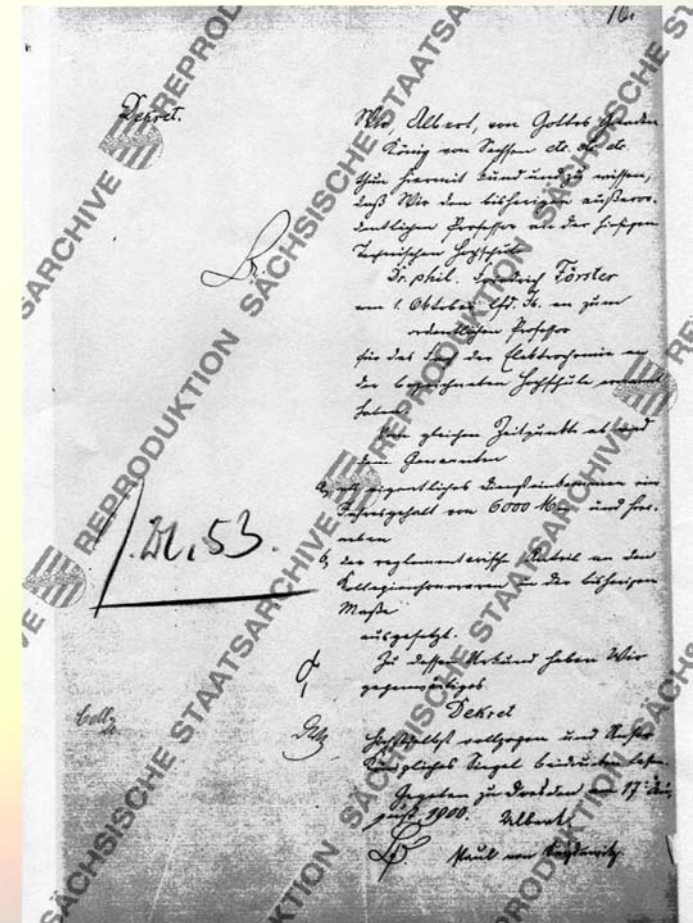 16.
Dekret.
Wir, Albert, von Gottes Gnaden
König von Sachsen etc. etc. etc.
thun hiermit kund und zu wissen,
daß Wir den bisherigen außeror-
dentlichen Professor an der hiesigen
Technischen Hochschule
Dr. phil. Friedrich Förster
vom 1. Oktober lfd. Js. an zum
ordentlichen Professor
für das Fach der Elektrochemie an
der bezeichneten Hochschule ernannt
haben.
Vom gleichen Zeitpunkte ab wird
dem Genannten
a, als eigentliches Diensteinkommen ein
Jahresgehalt von 6000 Mk. und hier-
neben
b, der reglementarische Anteil an den
Kollegienhonoraren in der bisherigen
Maße
ausgesetzt.
Zu dessen Urkund haben Wir
gegenwärtiges
Dekret
Höchstselbst vollzogen und Unser
Königliches Siegel beidrucken lassen.
Gegeben zu Dresden am 17. Au-
gust 1900. Albert
Paul von Seydewitz.
53.
Coll.
SÄCHSISCHE STAATSARCHIVE REPRODUKTION